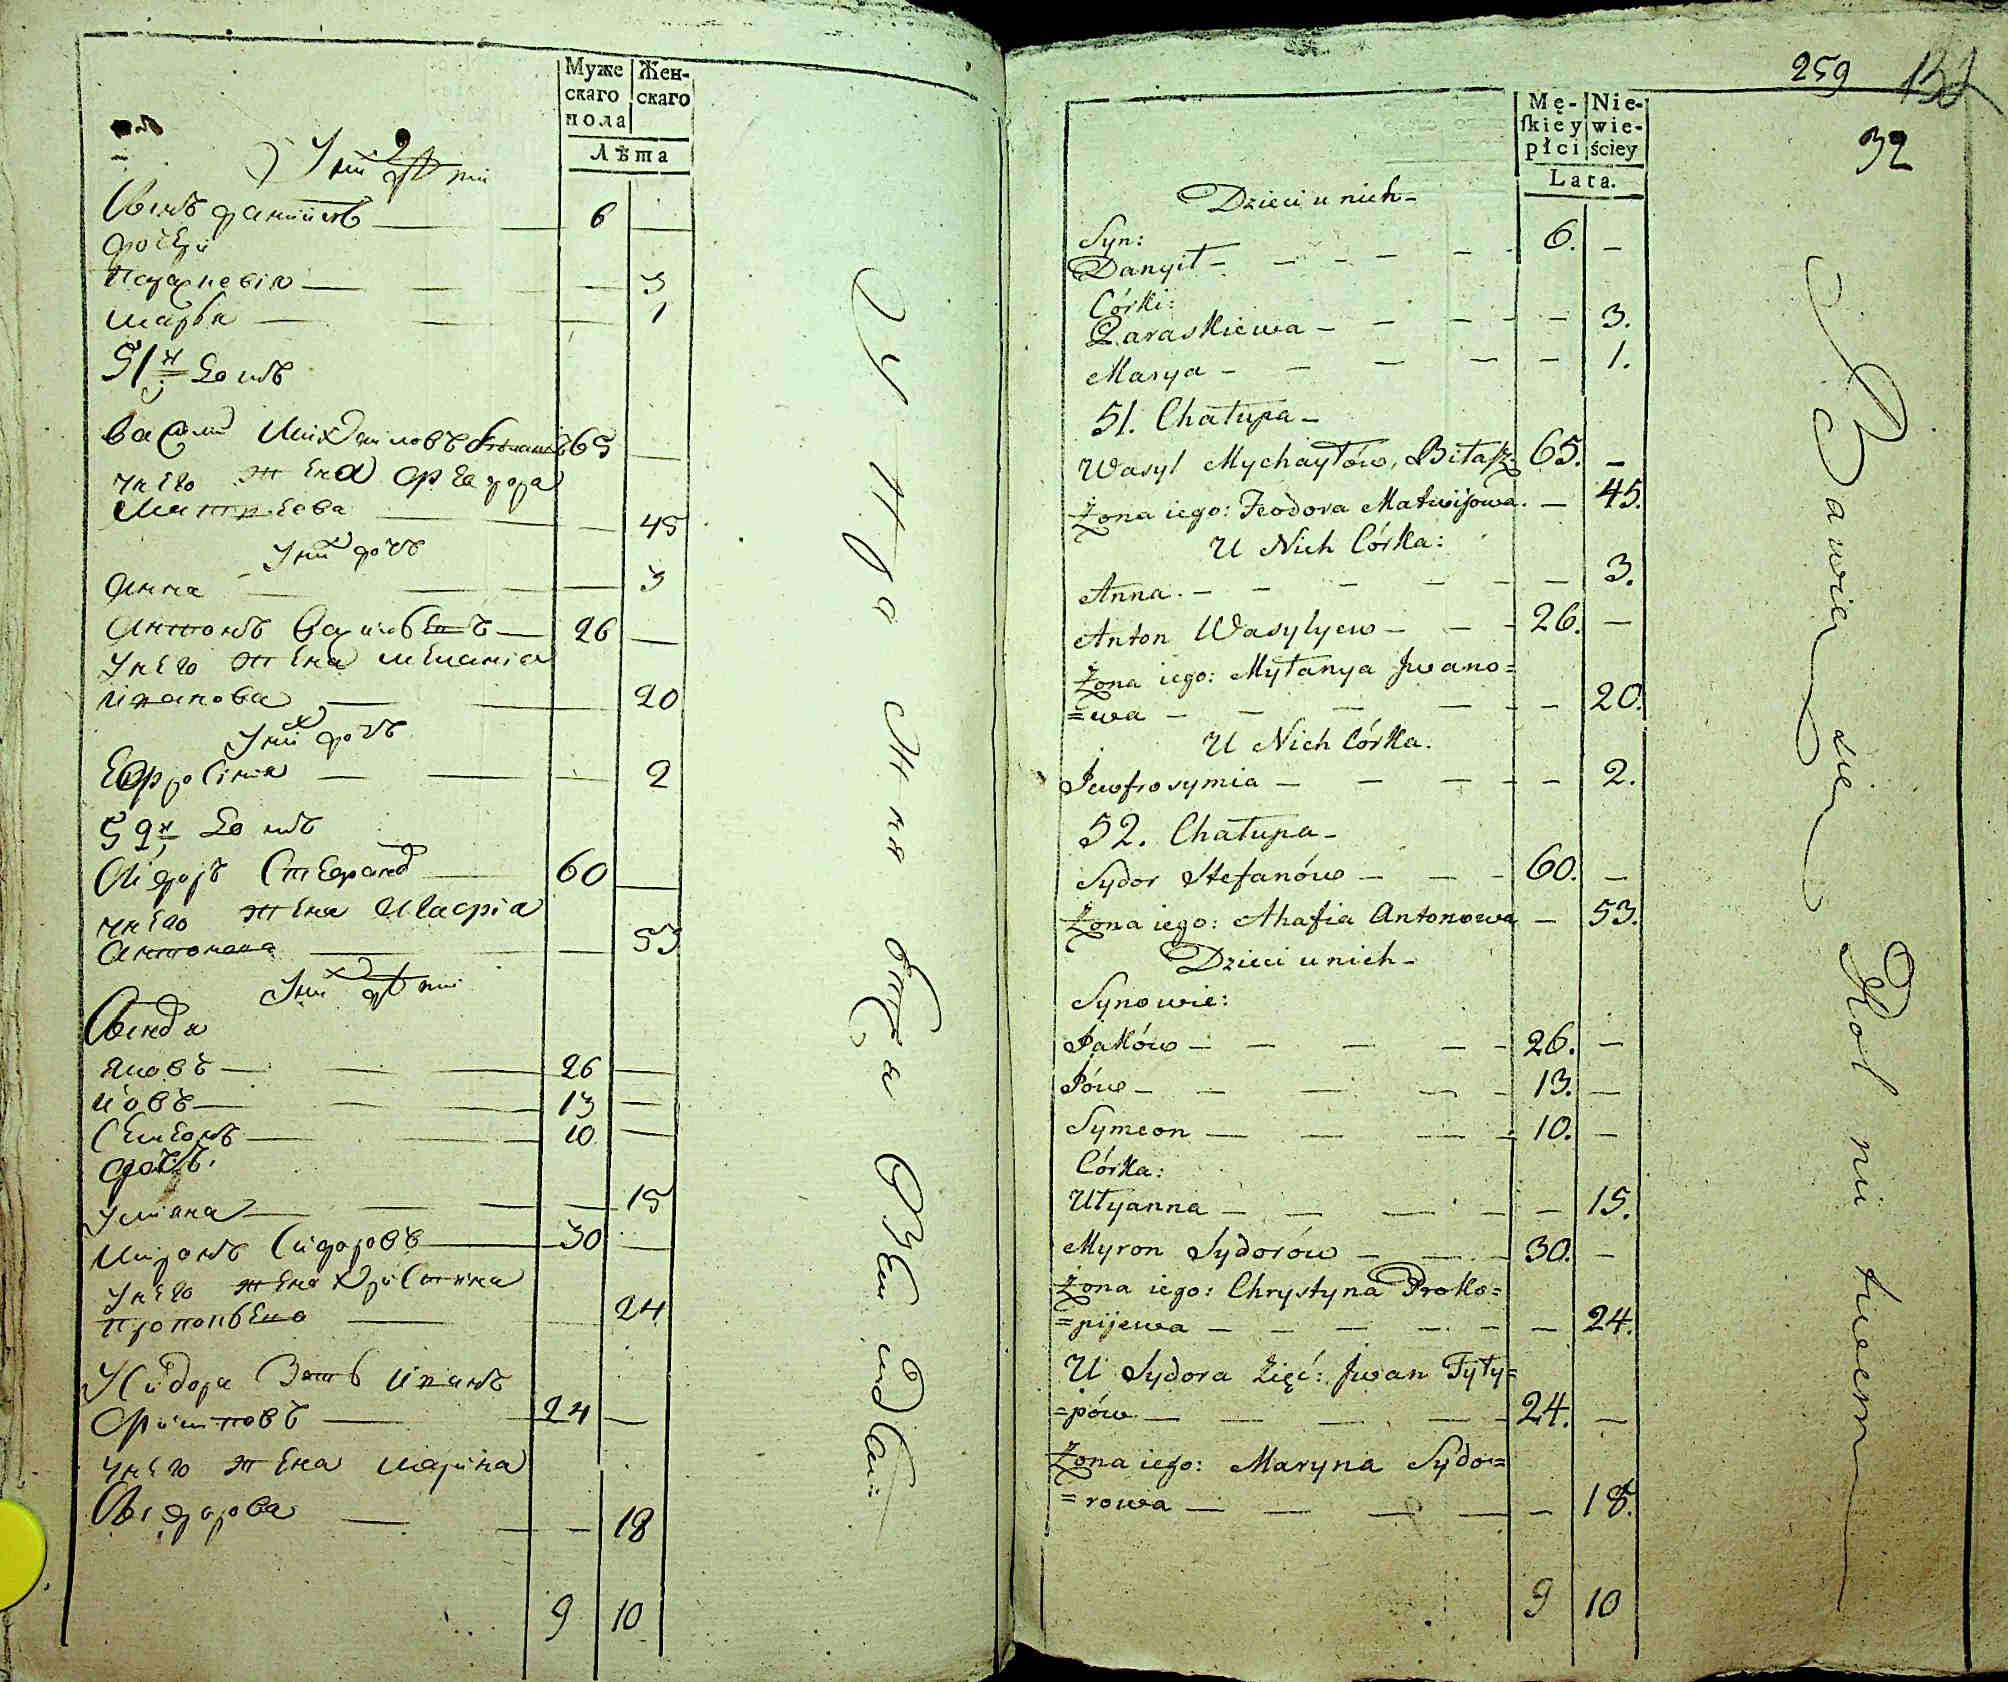 Муже
скаго
пола
Жен-
скаго
Лѣта
У них дѣти
Сынъ Данило 6
Дочери
Парасковія 3
Марья 1
51й Домъ
Василій Михайловъ 65
У него жена Феодора
Матвеева 45
У них дочь
Анна 3
Антонъ Васильевъ 26
У него жена Меланія
Иванова 20
У них дочь
Ефросиня 2
52й Домъ
Сидоръ Стефановъ 60
У него жена Агафія
Антонова 53
У них дѣти
Сыновя
Яковъ 26
Иовъ 13
Семионъ 10
Дочь
Улиана 15
Миронъ Сидоровъ 30
У него жена Христина
Прокопьева 24
У Сидора Зять Иванъ
Филиповъ 24
У него жена Марина
Сидорова 18
9 10
259
32
Mę-
skiey
płci
Nie-
wie-
ściey
Lata.
Dzieci u nich
Syn:
6.
Danyił
Córki:
Paraskiewa 3.
Marya 1.
51. Chałupa
Wasyl Mychayłów, Biłasz 65.
Żona iego: Feodora Matwijowa. 45.
U Nich Córka:
Anna. 3.
Anton Wasylyew 26.
Żona iego: Myłanya Jwano=
=wa 20.
U Nich Córka.
Jewfrosymia 2.
52. Chałupa
Sydor Stefanów 60.
Żona iego: Ahafia Antonowa 53.
Dzieci u nich
Synowie:
Jaków 26.
Jów 13.
Symeon 10.
Córka:
Ułyanna 15.
Myron Sydorów 30.
Żona iego: Chrystyna Proko=
=pijewa 24.
U Sydora Zięć: Jwan Fyły=
=pów 24.
Żona iego: Maryna Sydo=
=rowa 18.
9 10